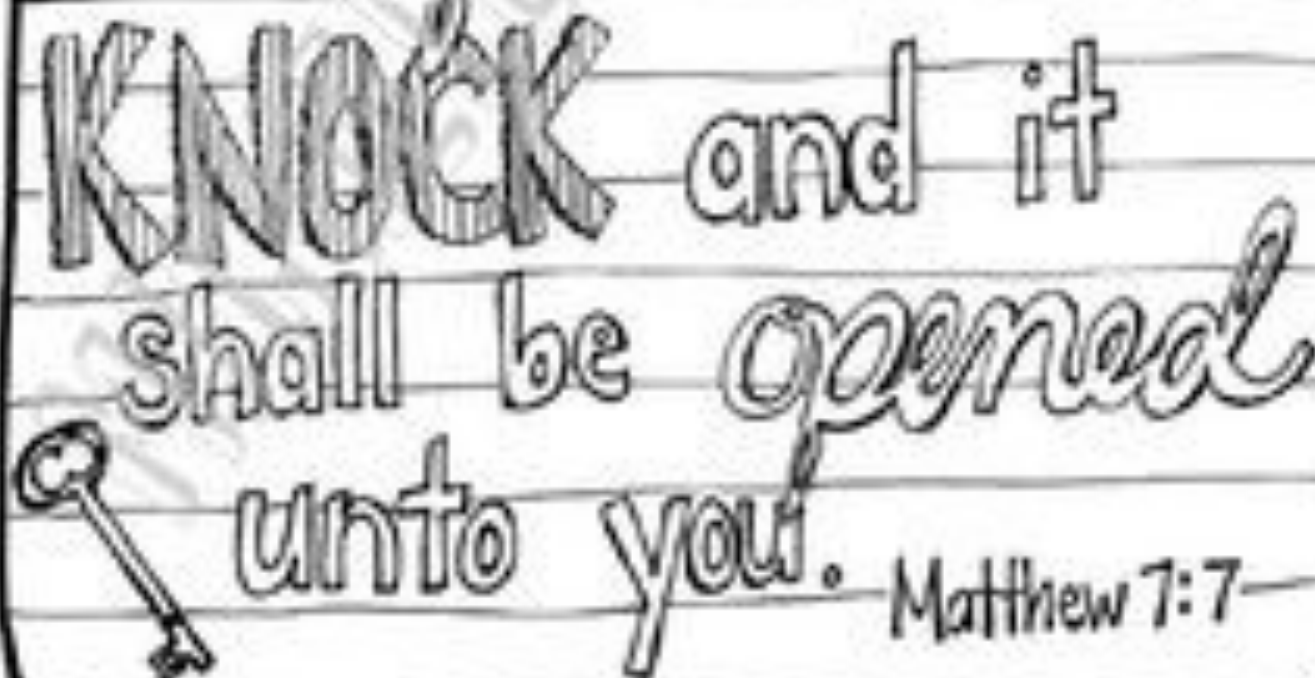 KNOCK and it
shall be opened
unto you.
Matthew 7:7